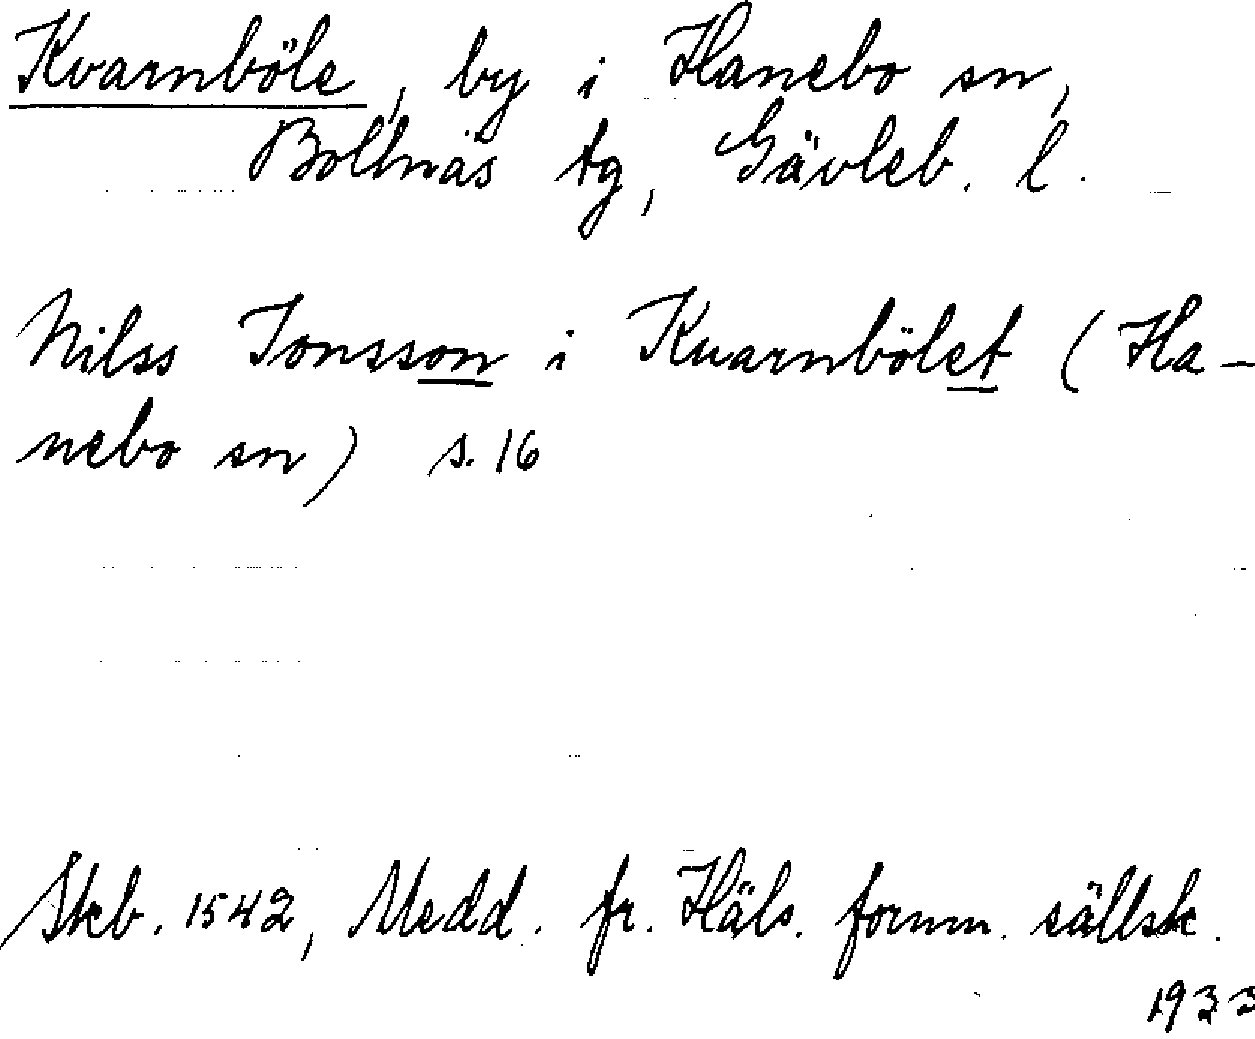 Kvarnböle, by i Hanebo sn,
Bollnäs tg, Gävleb. l.
Nilss Jonsson i Kuarnbölet (Ha-
nebo sn) s. 16
Skb. 1542, Medd. fr. Häls. fornm. sällsk.
1933